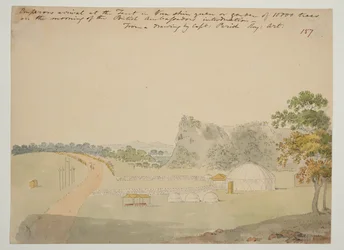 Emperors arrival at the Tent in Van shu yuen or garden of 10000 trees
on the morning of the British Ambassadors introduction.
From a drawing by Capt. Parish Roy. Art.
187